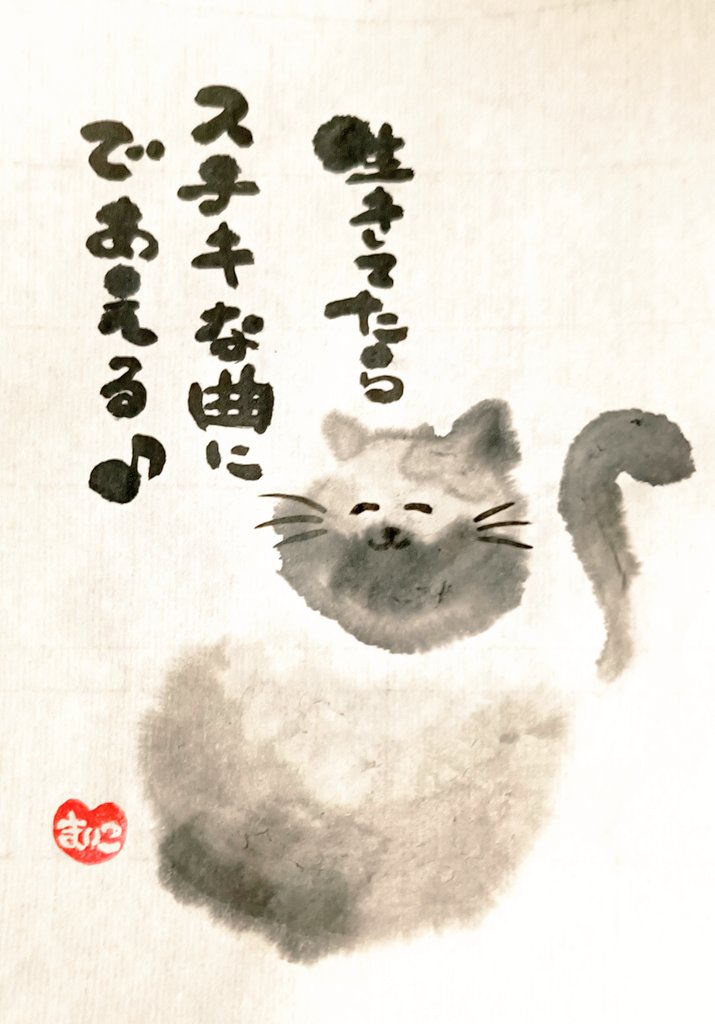 生きてたら
ステキな曲に
であえる♪
まりこ